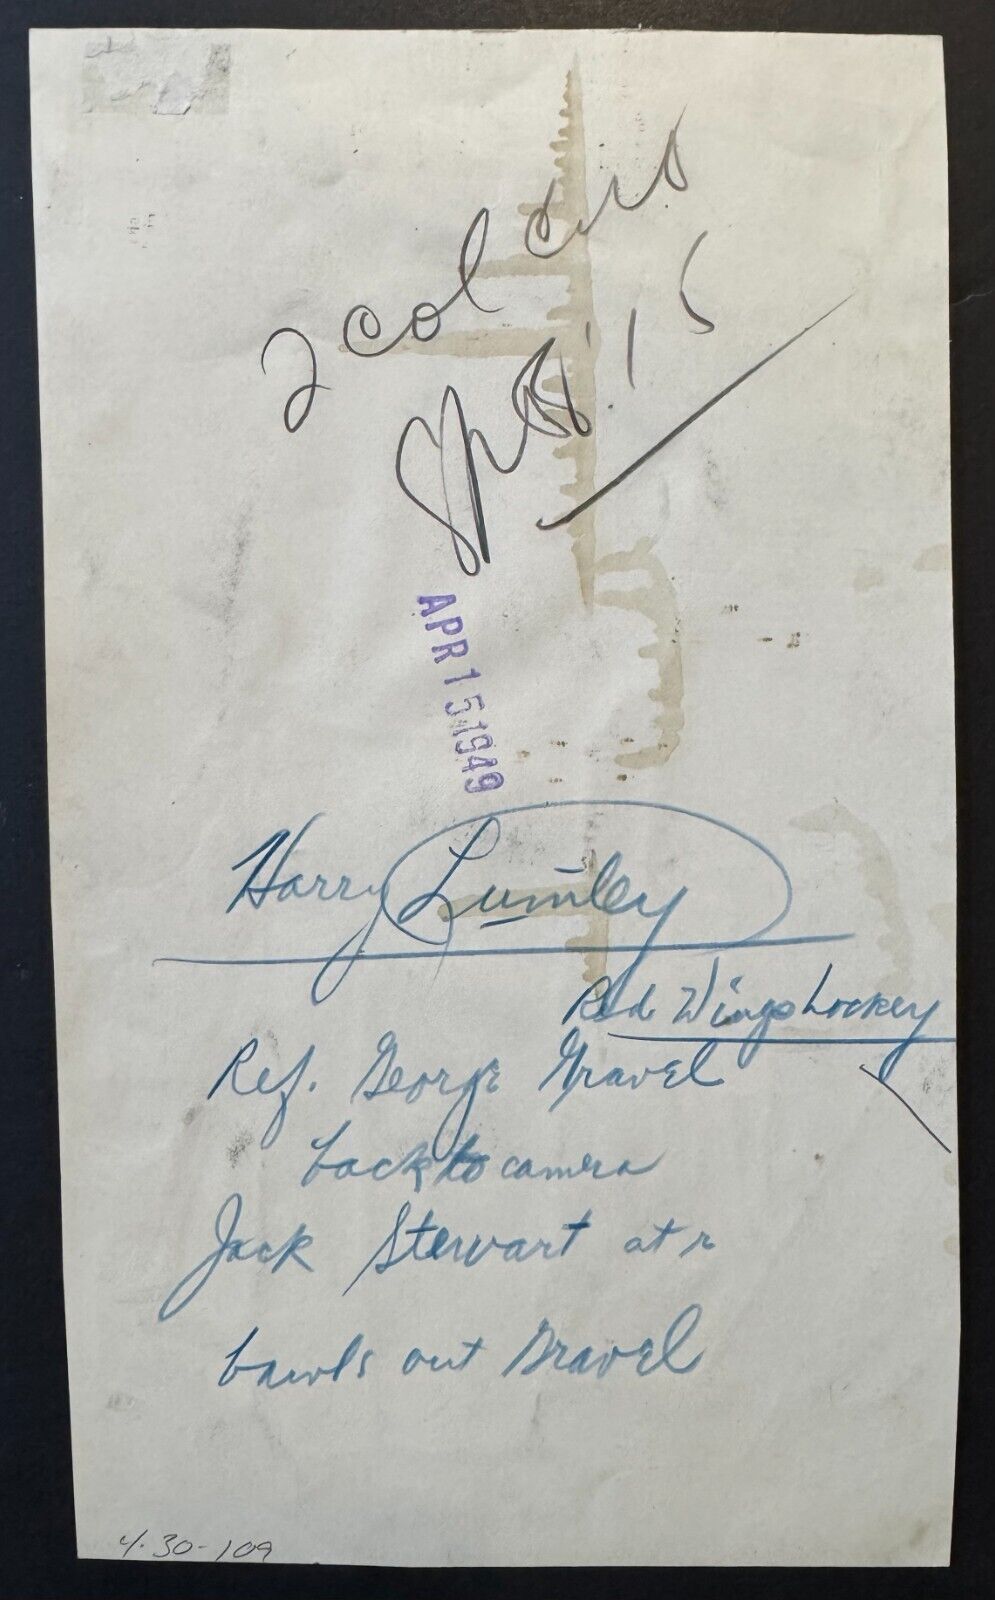 2 col
15
APR 15 1949
Harry Lumley
Red Wings hockey
Ref. George Gravel
back to camera
Jack Stewart at r
bawls out Gravel
4-30-109